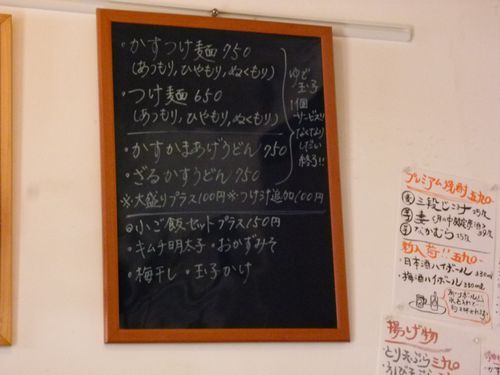 ・かすつけ麺 750
(あつもり,ひやもり,ぬくもり)
・つけ麺 650
(あつもり,ひやもり,ぬくもり)
ゆで
玉子
1個
サービス!!
なくなり
しだい
終了!!
・かすかまあげうどん 750
・ざるかすうどん 750
※大盛りプラス100円※つけ汁追加100円
◎小ご飯セットプラス150円
・キムチ明太子・おかずみそ
・梅干し・玉子かけ
プレミアム焼酎
新入荷!!
・日本酒ハイボール
・梅酒ハイボール
揚げ物
とり天ぷら